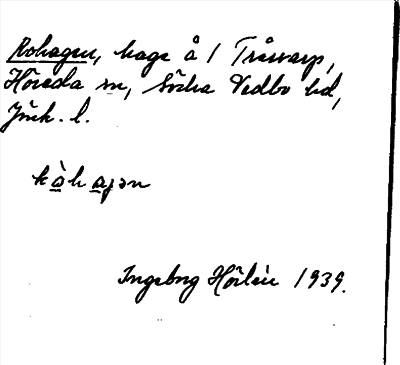 Kohagen, hage å 1 Tråsvarp,
Höreda sn, Södra Vedbo hd,
Jönk. l.
kàhajən
Ingeborg Hörlén 1939.